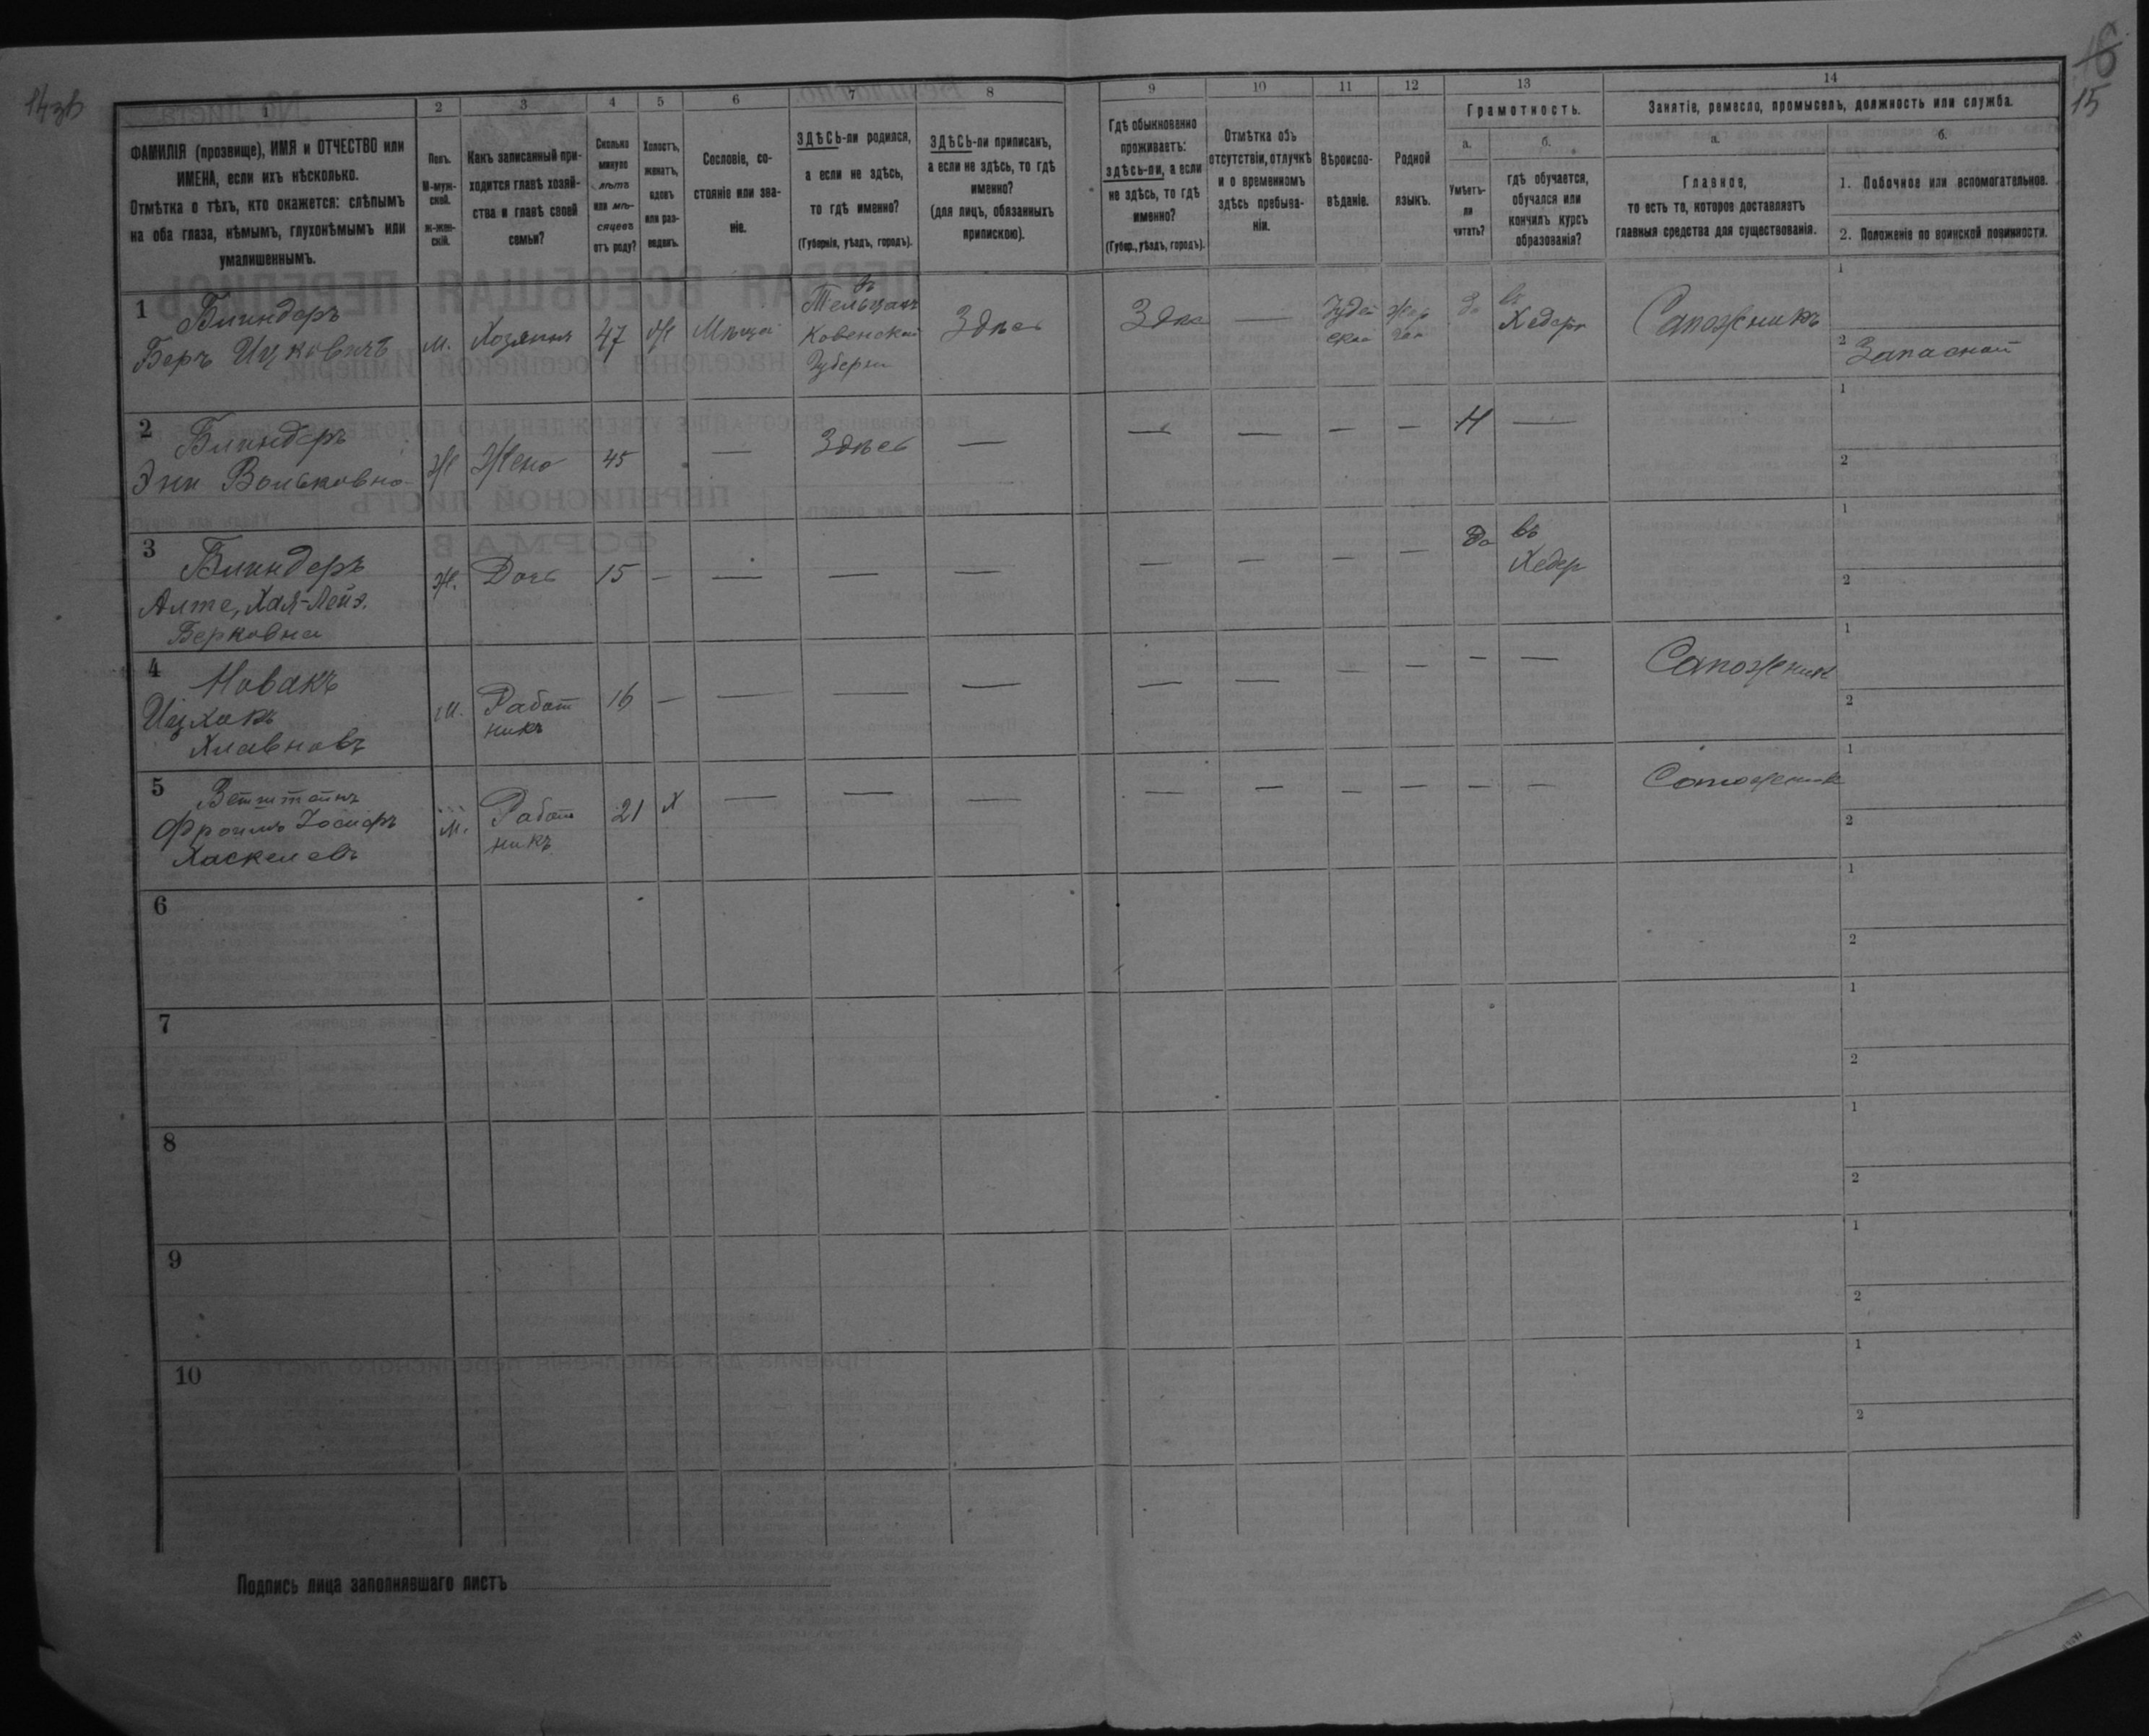 14зв
16
15
1
2
3
4
5
6
7
8
9
10
11
12
13
14
ФАМИЛІЯ (прозвище), ИМЯ и ОТЧЕСТВО или
ИМЕНА, если ихъ нѣсколько.
Отмѣтка о тѣхъ, кто окажется: слѣпымъ
на оба глаза, нѣмымъ, глухонѣмымъ или
умалишеннымъ.
Полъ.
М-муж-
ской.
Ж-жен-
скій.
Какъ записанный при-
ходится главѣ хозяй-
ства и главѣ своей
семьи?
Сколько
минуло
лѣтъ
или мѣ-
сяцевъ
отъ роду?
Холостъ,
женатъ,
вдовъ
или раз-
веденъ.
Сословіе, со-
стояніе или зва-
ніе.
ЗДѢСЬ-ли родился,
а если не здѣсь,
то гдѣ именно?
(Губернія, уѣздъ, городъ).
ЗДѢСЬ-ли приписанъ,
а если не здѣсь, то гдѣ
именно?
(для лицъ, обязанныхъ
припискою).
Гдѣ обыкновенно
проживаетъ:
здѣсь-ли, а если
не здѣсь, то гдѣ
именно?
(Губер., уѣздъ, городъ).
Отмѣтка объ
отсутствіи, отлучкѣ
и о временномъ
здѣсь пребыва-
ніи.
Вѣроиспо-
вѣданіе.
Родной
языкъ.
Грамотность.
а.
Умѣетъ-
ли
читать?
б.
гдѣ обучается,
обучался или
кончилъ курсъ
образованія?
Занятіе, ремесло, промыселъ, должность или служба.
а.
Главное,
то есть то, которое доставляетъ
главныя средства для существованія.
б.
1. Побочное или вспомогательное.
2. Положеніе по воинской повинности.
1
Блиндеръ
Беръ Ицковичъ
м.
Хозяинъ
47
Ж
въ
Ковенской
Губерни
Здѣсь
—
да
въ
Хедерѣ
Сапожникъ
1
2
Запасной
2
Блиндеръ
Вольковна
Ж
Жена
45
—
Здѣсь
—
—
—
—
—
Н
—
1
2
3
Блиндеръ
Алте, Хая-Лейз.
Берковна
Ж.
Дочь
15
—
—
—
—
—
—
—
—
да
въ
Хедер
1
2
4
Новакъ
Ицхокъ
Хлавновъ
м.
Работ
никъ
16
—
—
—
—
—
—
—
—
—
—
Сапожник
1
2
5
Фроимъ Іосифъ
Хаскелевъ
м.
Работ
никъ
21
Х
—
—
—
—
—
—
—
—
—
Сапожник
1
2
6
1
2
7
1
2
8
1
2
9
1
2
10
1
2
Подпись лица заполнявшаго листъ